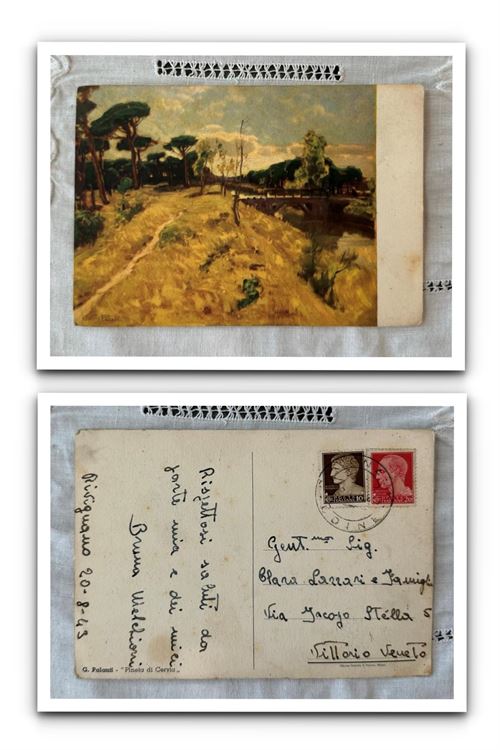 Rispettosi saluti da
parte mia e dei miei
Bruna Melchiorri
Rivignano 20-8-43
G. Palanti - "Pineta di Cervia"
UDINE
Gent.ma Sig.
Clara Lazzari e Famigl
Via Jacopo Stella 5
Vittorio Veneto